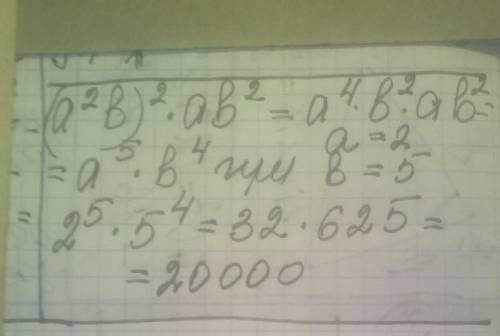 (a²b)²·ab² = a⁴·b²·ab² =
= a⁵·b⁴ при a=2 b=5
2⁵·5⁴ = 32·625 =
= 20000